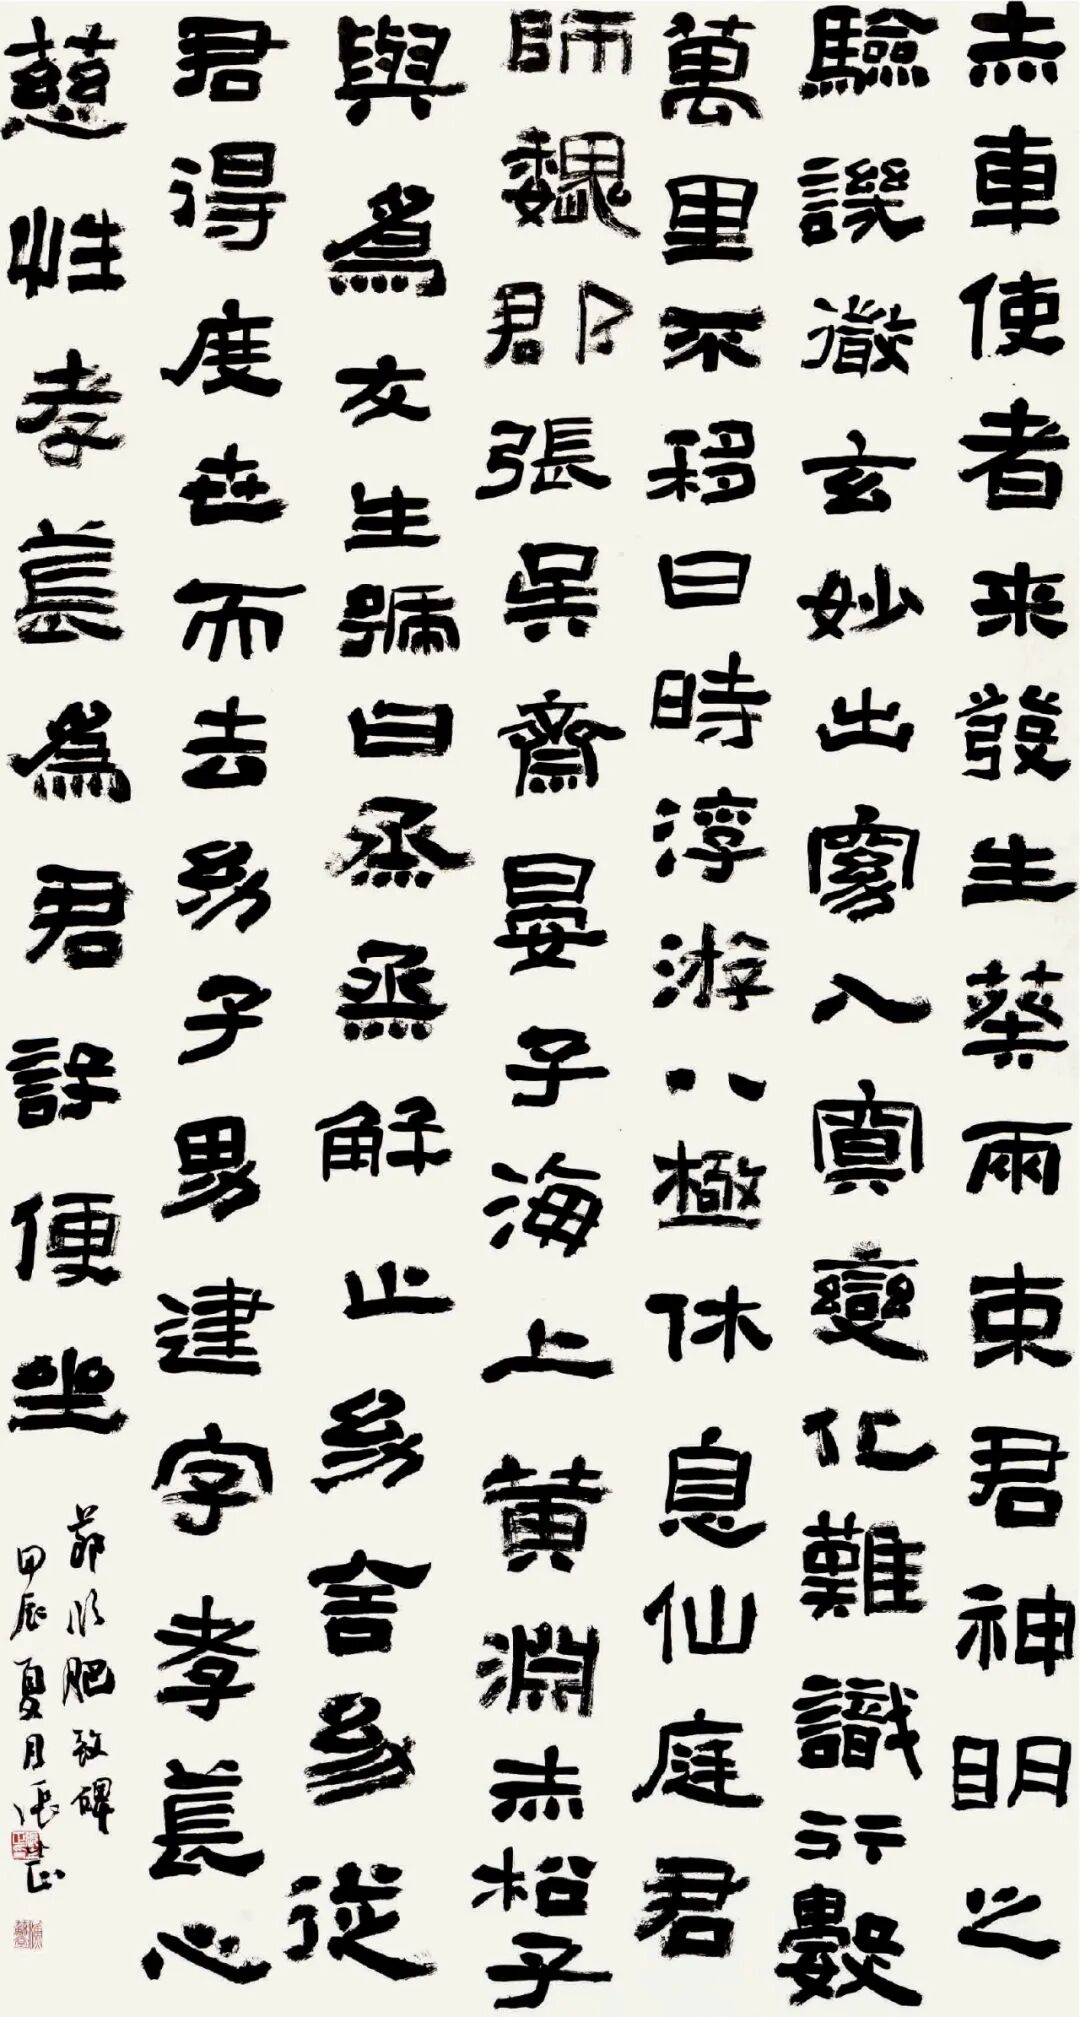 赤車使者来發生葵兩束君神明之
驗譏徹玄妙出窈入冥變化難識行數
萬里不移日時淳游八極休息仙庭君
師魏郡張吳齋晏子海上黄淵赤松子
與為友生號曰烝烝解止幼舍幼從
君得度世而去幼子男建字孝萇心
慈性孝萇為君設便坐
節臨肥致碑
甲辰夏月張